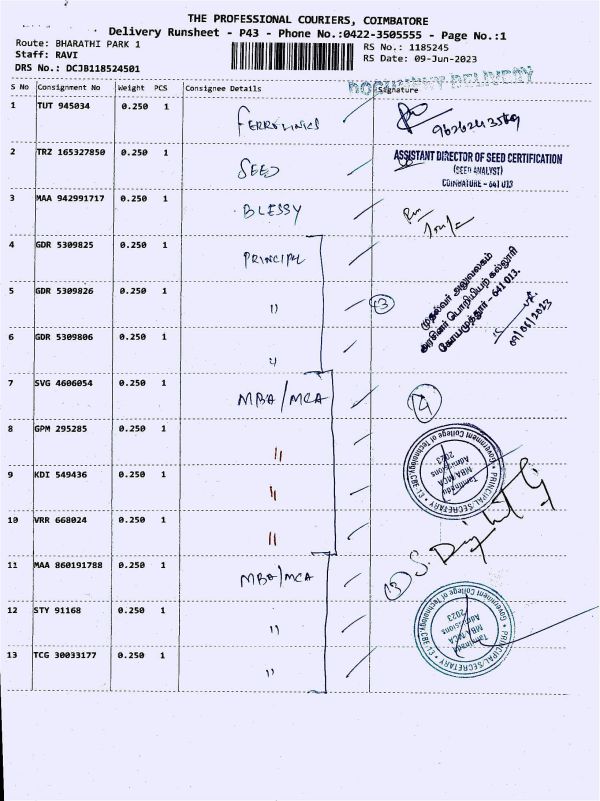 THE PROFESSIONAL COURIERS, COIMBATORE
Delivery Runsheet - P43 - Phone No.:0422-3505555 - Page No.:1
Route: BHARATHI PARK 1
RS No.: 1185245
Staff: RAVI
RS Date: 09-Jun-2023
DRS No.: DCJB118524501
S No Consignment No Weight PCS Consignee Details Signature
1 TUT 945034 0.250 1
9626243589
2 TRZ 165327850 0.250 1 SEED
ASSISTANT DIRECTOR OF SEED CERTIFICATION
(SEED ANALYST)
COIMBATURE - 641 013
3 MAA 942991717 0.250 1 BLESSY
4 GDR 5309825 0.250 1 PRINCIPAL
முதல்வர் அலுவலகம்
அரசினர் பொறியியற் கல்லூரி
கோயமுத்தூர் - 641 013.
09/06/2023
5 GDR 5309826 0.250 1 "
6 GDR 5309806 0.250 1 "
7 SVG 4606054 0.250 1 MBA/MCA
8 GPM 295285 0.250 1 "
PRINCIPAL/SECRETARY
Government College of Technology,CBE-13
Tamilnadu
MBA/MCA
Admissions
2023
9 KDI 549436 0.250 1 "
10 VRR 668024 0.250 1 "
11 MAA 860191788 0.250 1 MBA/MCA
12 STY 91168 0.250 1 "
PRINCIPAL/SECRETARY
Government College of Technology,CBE-13
Tamilnadu
MBA/MCA
Admissions
2023
13 TCG 30033177 0.250 1 "